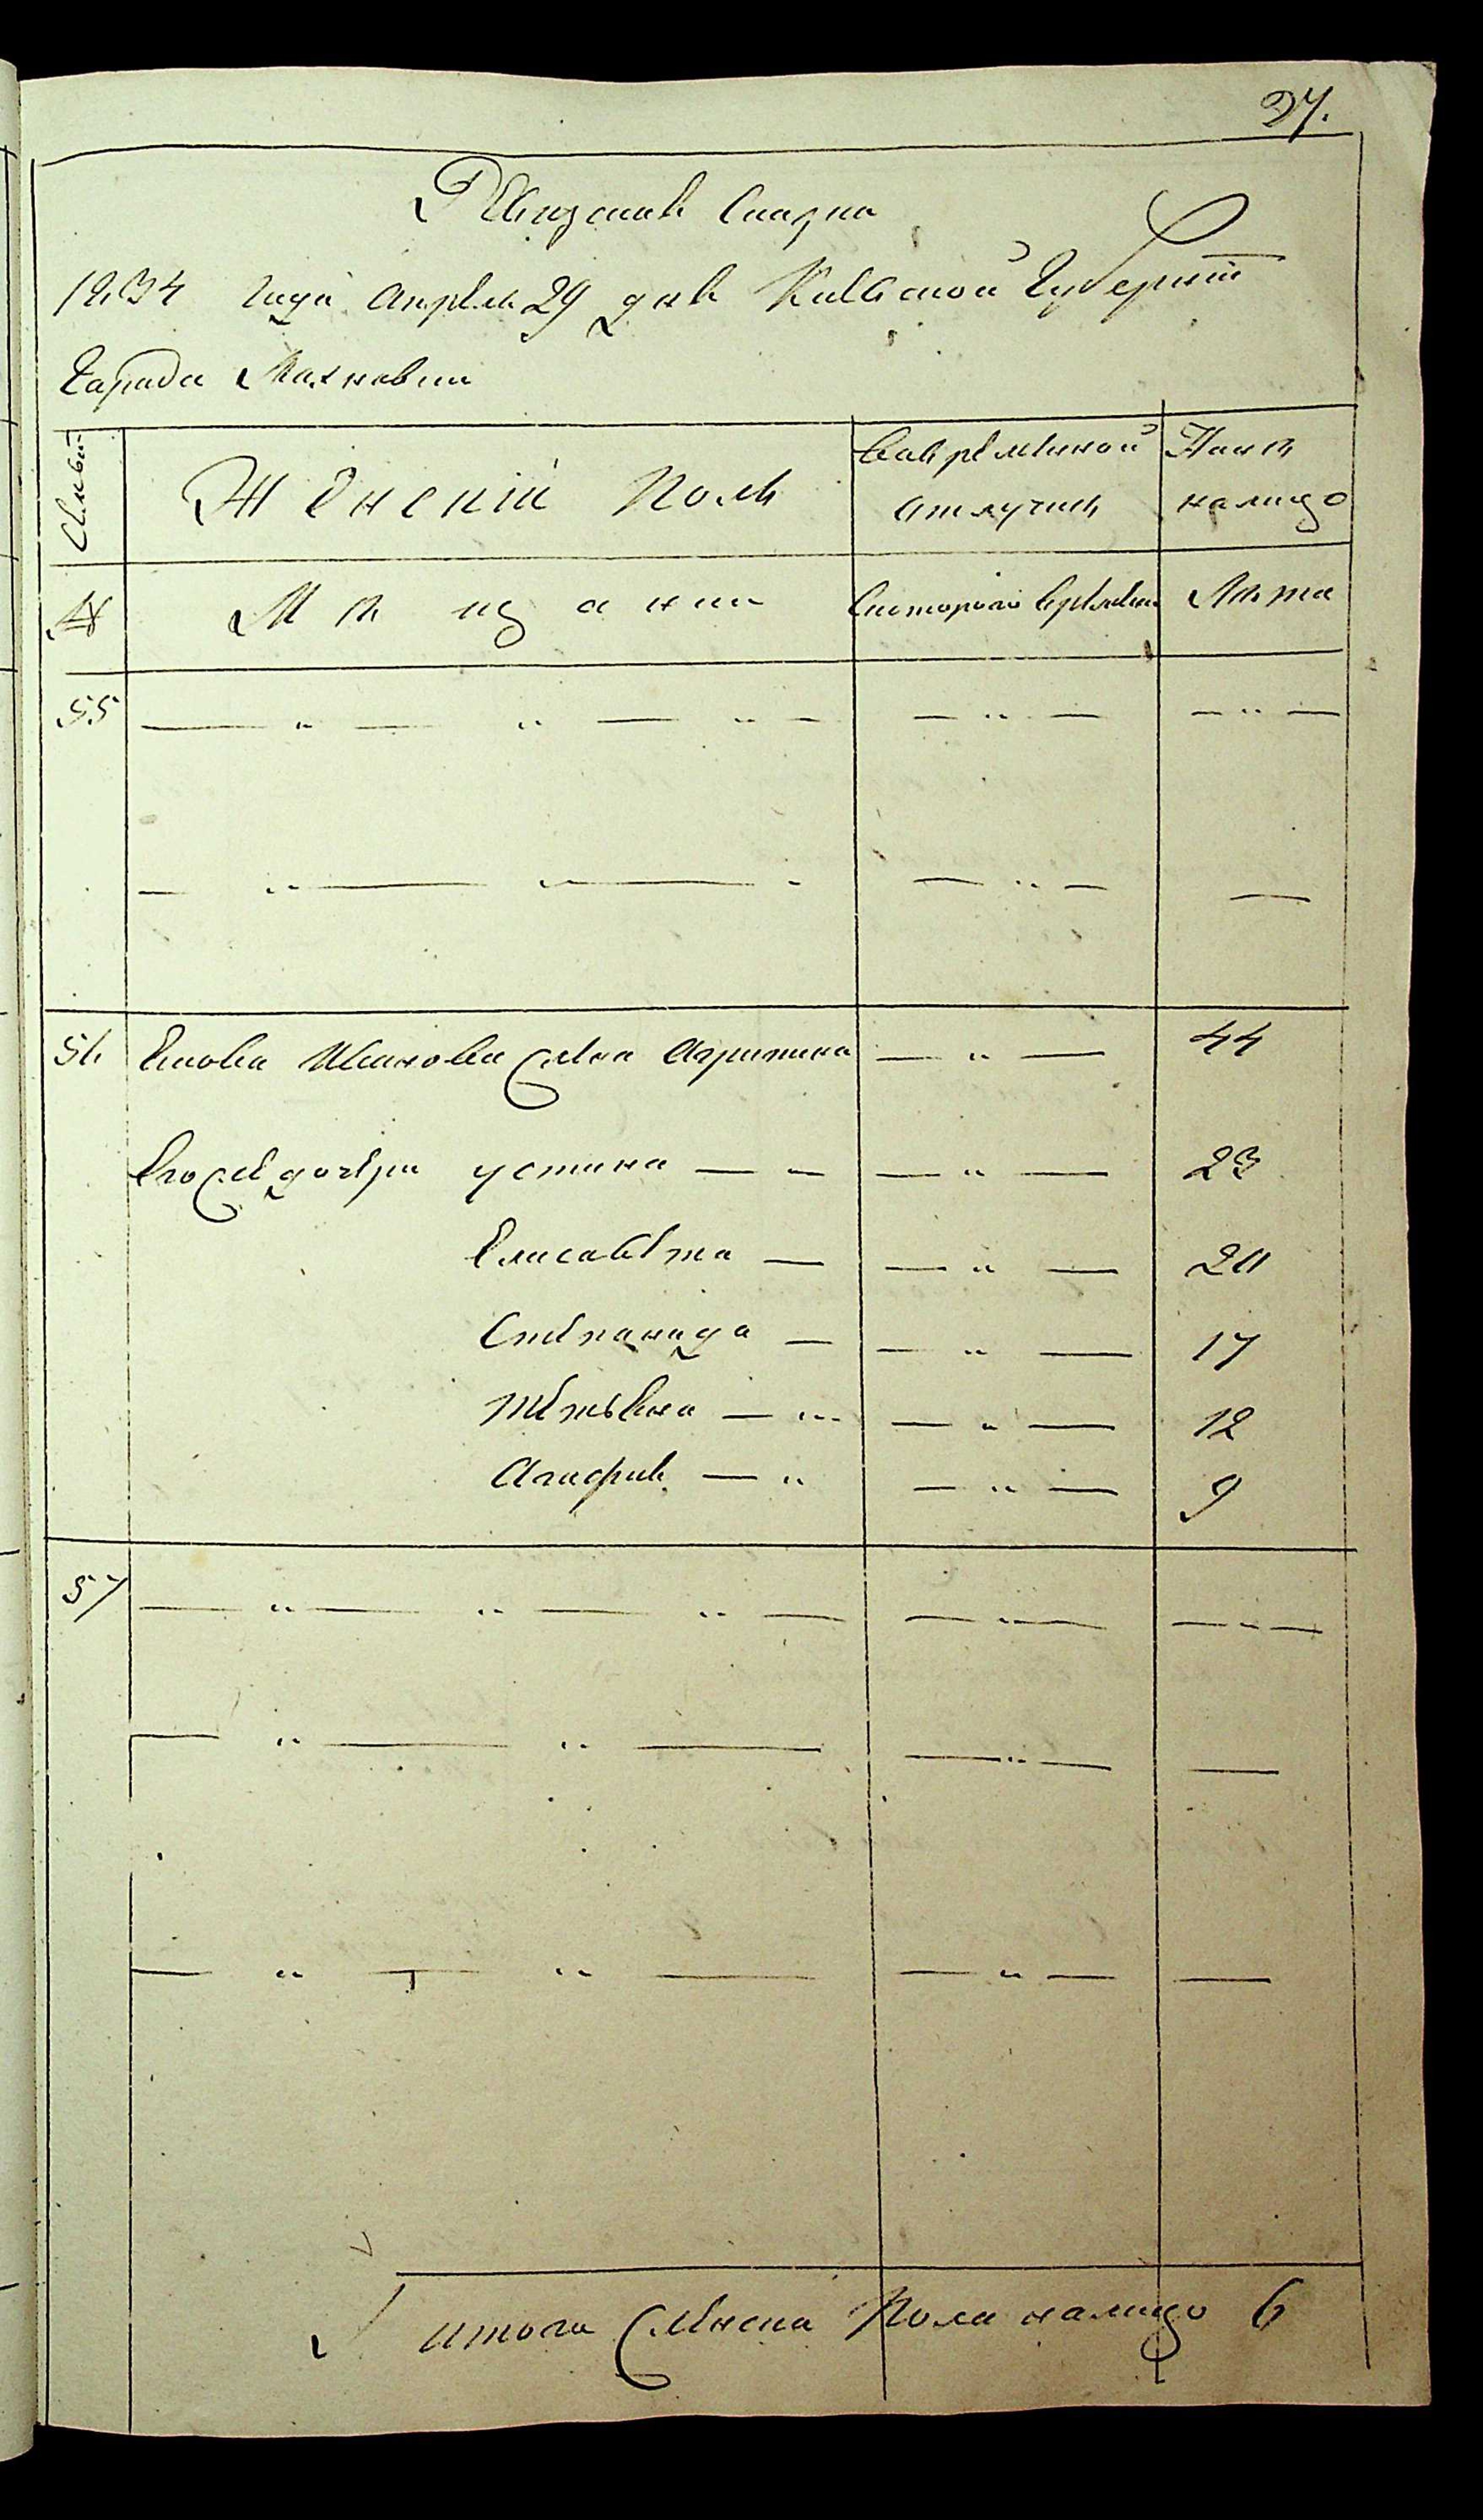 27.
Ревизская Сказка
1834 года апреля 29 дня Киевской Губернии
Города Махновки
Семьи
Женский Полъ
Вовременной
отлучки
Ныне
налицо
№
Мещанки
Скоторого времени
Лета
55 — „ — „ — „ — — „ — — „ —
— „ — „ — - — „ — —
56 Якова Иванова жена Агрипина — „ — 44
Его же дочери устина — — — „ — 23
Елисавета — — „ — 20
Степанида — — „ — 17
Тетьяна — „ — „ — 12
Агафия — „ — „ — 9
57 — „ — „ — „ — — „ — — „ —
— „ — „ — — „ — —
— „ — „ — — „ — —
итого женска Пола налицо 6